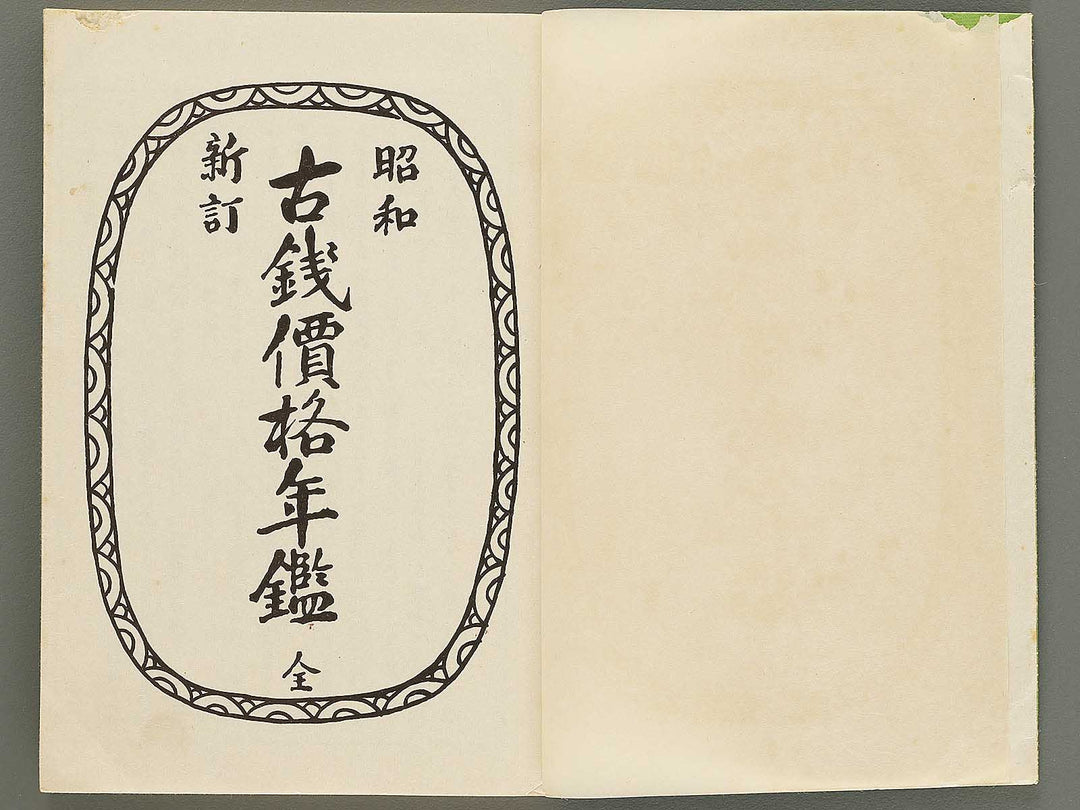 昭和
新訂
古銭價格年鑑
全